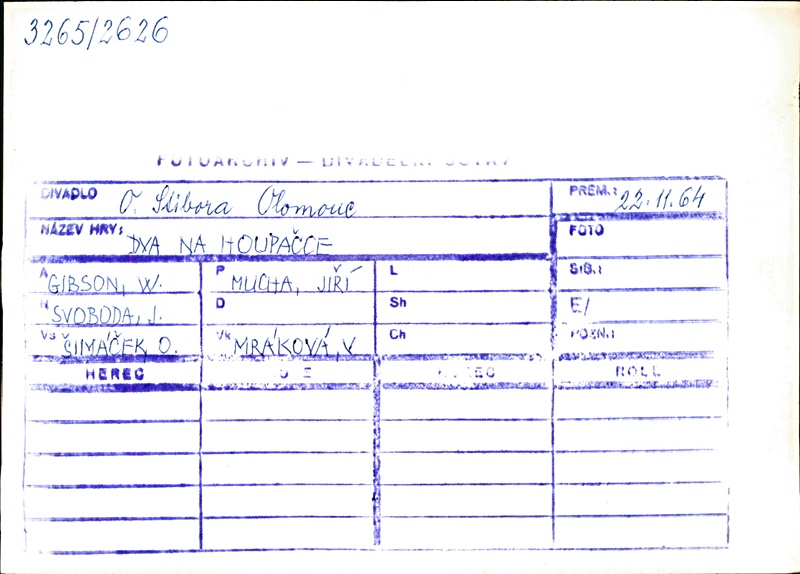 3265/2626
FOTOARCHIV — DIVADELNÍ
DIVADLO O. Stibora Olomouc PREM.: 22.11.64
NÁZEV HRY: DVA NA HOUPAČCE FOTO
A GIBSON, W. P MUCHA, JIŘÍ L SIG.:
SVOBODA, J. D Sh E/
VS ŠIMÁČEK, O. Vk MRÁKOVÁ, V Ch POZN.:
HEREC